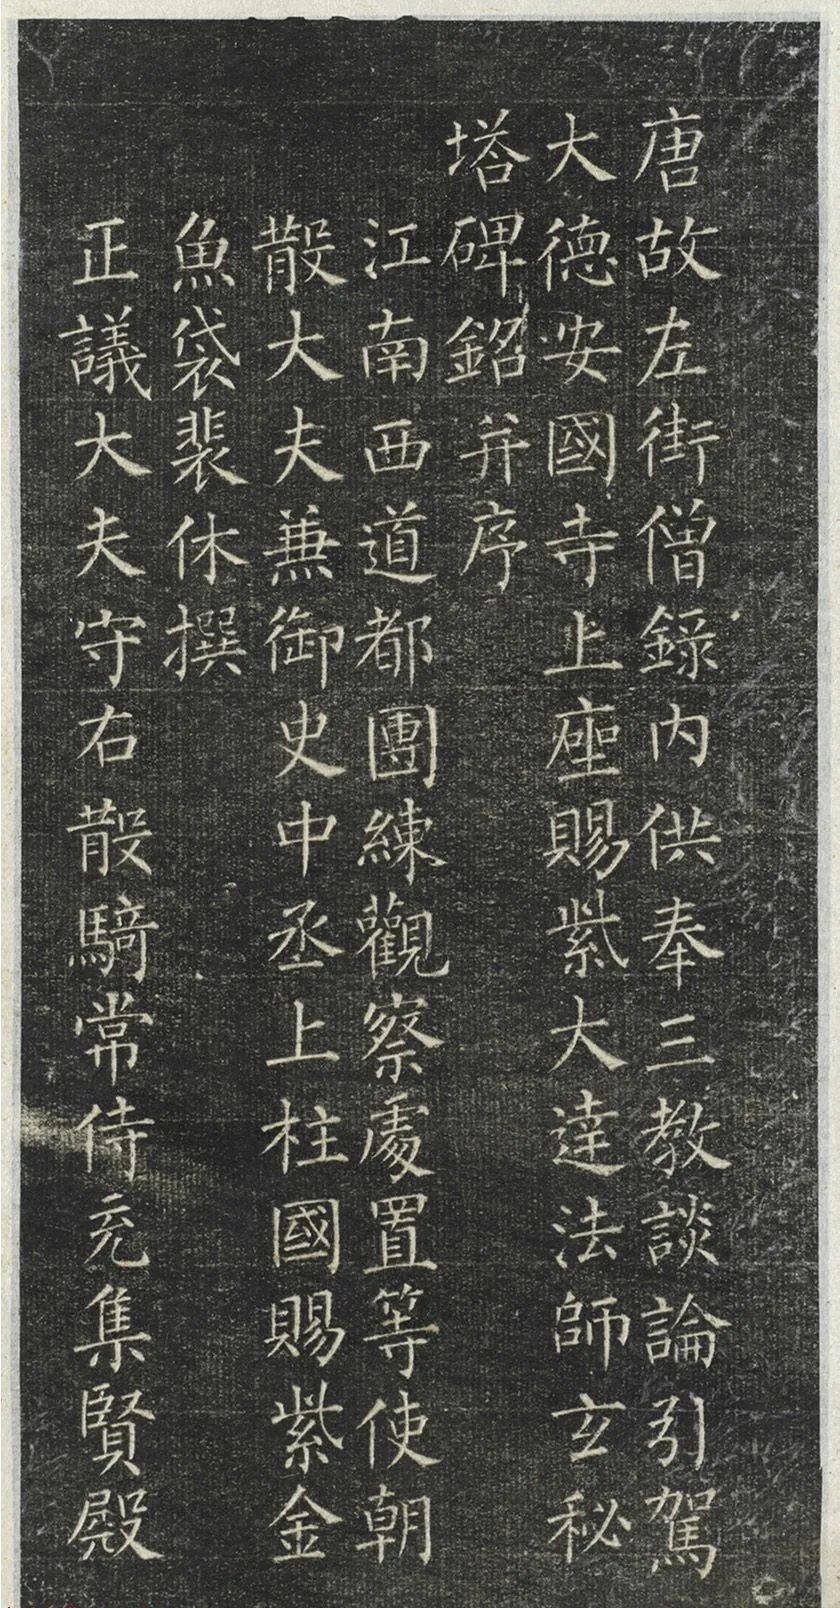 唐故左街僧錄內供奉三教談論引駕
大德安國寺上座賜紫大達法師玄秘
塔碑銘并序
江南西道都團練觀察處置等使朝
散大夫兼御史中丞上柱國賜紫金
魚袋裴休撰
正議大夫守右散騎常侍充集賢殿